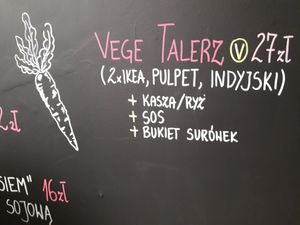 VEGE TALERZ V 27zł
(2xIKEA, PULPET, INDYJSKI)
+ KASZA/RYŻ
+ SOS
+ BUKIET SURÓWEK
2zł
SIEM" 16zł
SOJOWĄ